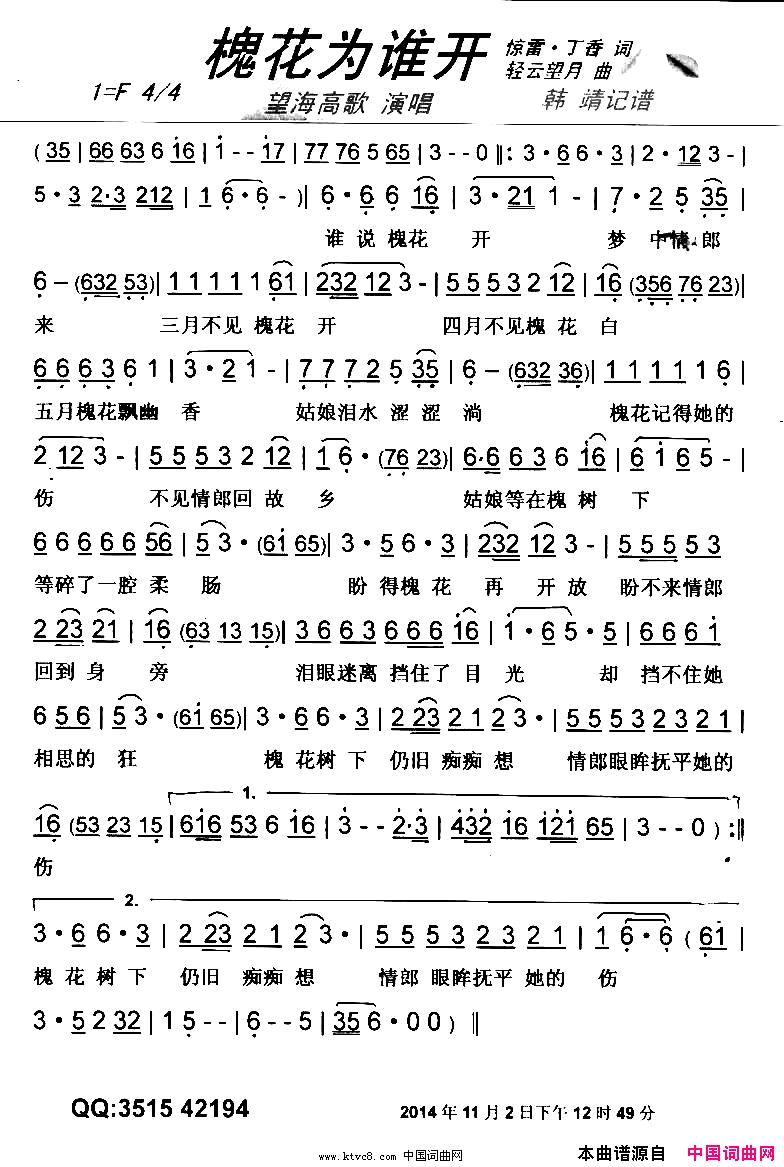 槐花为谁开
惊雷·丁香 词
轻云望月 曲
1=F 4/4
望海高歌 演唱
韩 靖记谱
( 35 | 66 63 6 16 | 1 - - 17 | 77 76 5 65 | 3 - - 0 ‖: 3 · 6 6 · 3 | 2 · 12 3 - |
5 · 3 2·3 212 | 1 6 · 6 - ) | 6 · 6 6 16 | 3 · 21 1 - | 7 · 2 5 35 |
谁 说 槐花 开 梦 中情 郎
6 - (632 53) | 1 1 1 1 1 61 | 232 12 3 - | 5 5 5 3 2 12 | 16 (356 76 23) |
来 三月不见 槐花 开 四月不见槐 花 白
6 6 6 3 6 1 | 3 · 2 1 - | 7 7 7 2 5 35 | 6 - (632 36) | 1 1 1 1 1 6 |
五月槐花飘幽 香 姑娘泪水 涩涩 淌 槐花记得她的
2 12 3 - | 5 5 5 3 2 12 | 1 6 · (76 23) | 6·6 6 6 3 6 16 | 1 6 5 - |
伤 不见情郎回 故 乡 姑娘等在槐 树 下
6 6 6 6 6 56 | 5 3 · (61 65) | 3 · 5 6 · 3 | 232 12 3 - | 5 5 5 5 3
等碎了一腔 柔 肠 盼 得槐 花 再 开 放 盼不来情郎
2 23 21 | 16 (63 13 15) | 3 6 6 3 6 6 6 16 | 1 · 6 5 · 5 | 6 6 6 6 1
回到 身 旁 泪眼迷离 挡住了 目 光 却 挡不住她
6 5 6 | 5 3 · (61 65) | 3 · 6 6 · 3 | 2 23 2 1 2 3 · | 5 5 5 3 2 3 2 1 |
相思的 狂 槐 花树 下 仍旧 痴痴 想 情郎眼眸抚平她的
1.
16 (53 23 15 | 616 53 6 16 | 3 - - 2·3 | 432 16 121 65 | 3 - - 0 ) :‖
伤
2.
3 · 6 6 · 3 | 2 23 2 1 2 3 · | 5 5 5 3 2 3 2 1 | 1 6 · 6 ( 61 |
槐 花 树 下 仍旧 痴痴 想 情郎 眼眸抚平 她的 伤
3 · 5 2 32 | 1 5 - - | 6 - - 5 | 35 6 · 0 0 ) ‖
QQ:3515 42194
2014 年 11 月 2 日下午 12 时 49 分
www.ktvc8.com 中国词曲网
本曲谱源自 中国词曲网